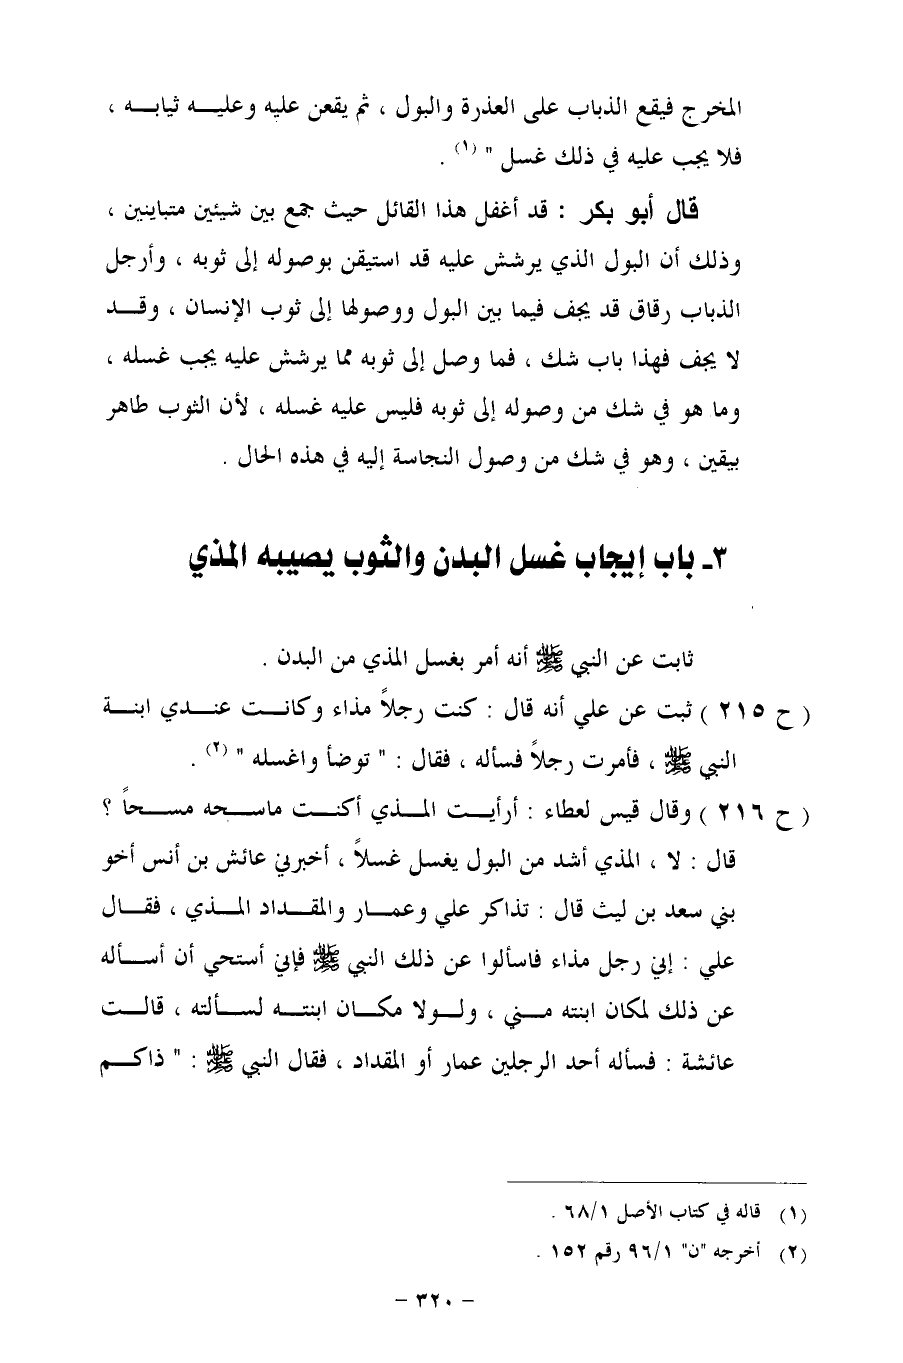 المخرج فيقع الذباب على العذرة والبول ، ثم يقعن عليه وعليه ثيابه ،
فلا يجب عليه في ذلك غسل " (١) .
قال أبو بكر : قد أغفل هذا القائل حيث جمع بين شيئين متباينين ،
وذلك أن البول الذي يرشش عليه قد استيقن بوصوله إلى ثوبه ، وأرجل
الذباب رقاق قد يجف فيما بين البول ووصولها إلى ثوب الإنسان ، وقد
لا يجف فهذا باب شك ، فما وصل إلى ثوبه مما يرشش عليه يجب غسله ،
وما هو في شك من وصوله إلى ثوبه فليس عليه غسله ، لأن الثوب طاهر
بيقين ، وهو في شك من وصول النجاسة إليه في هذه الحال .
٣ـ باب إيجاب غسل البدن والثوب يصيبه المذي
ثابت عن النبي ﷺ أنه أمر بغسل المذي من البدن .
( ح ٢١٥ ) ثبت عن علي أنه قال : كنت رجلاً مذاء وكانت عندي ابنة
النبي ﷺ ، فأمرت رجلاً فسأله ، فقال : " توضأ واغسله " (٢) .
( ح ٢١٦ ) وقال قيس لعطاء : أرأيت المذي أكنت ماسحه مسحاً ؟
قال : لا ، المذي أشد من البول يغسل غسلاً ، أخبرني عائش بن أنس أخو
بني سعد بن ليث قال : تذاكر علي وعمار والمقداد المذي ، فقال
علي : إني رجل مذاء فاسألوا عن ذلك النبي ﷺ فإني أستحي أن أسأله
عن ذلك لمكان ابنته مني ، ولولا مكان ابنته لسألته ، قالت
عائشة : فسأله أحد الرجلين عمار أو المقداد ، فقال النبي ﷺ : " ذاكم
(١) قاله في كتاب الأصل ٦٨/١ .
(٢) أخرجه "ن" ٩٦/١ رقم ١٥٢ .
- ٣٢٠ -